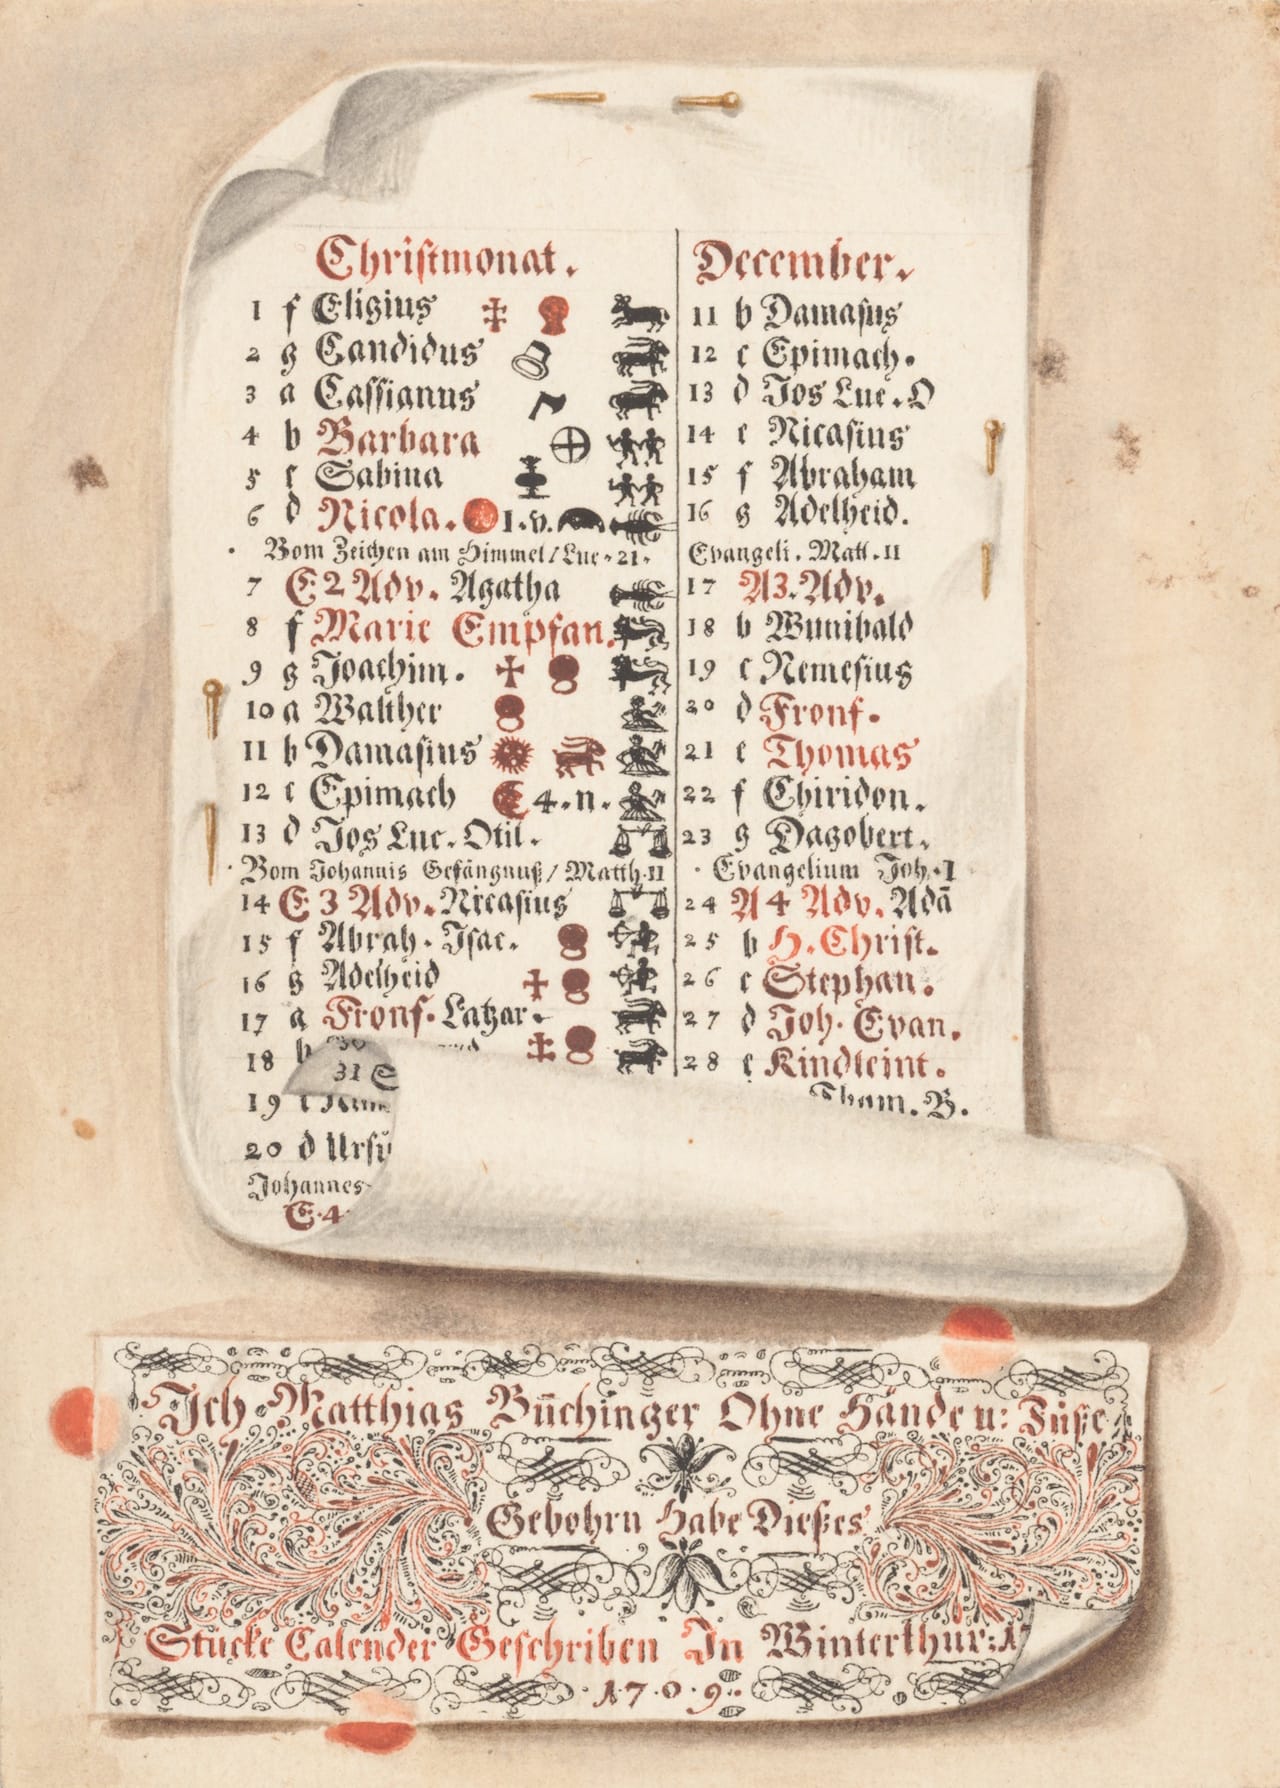 Christmonat.
1 f Eligius
2 g Candidus
3 a Cassianus
4 b Barbara
5 c Sabina
6 d Nicola. 1.v.
Vom Zeichen am Himmel/Luc.21.
7 E 2 Adv. Agatha
8 f Marie Empfan.
9 g Joachim.
10 a Walther
11 b Damasius
12 c Epimach 4.n.
13 d Jos Luc. Otil.
Vom Johannis Gefängnuß/Matth.11
14 E 3 Adv. Nicasius
15 f Abrah. Isac.
16 g Adelheid
17 a Fronf. Latzar.
18 b
31
19 c
20 d Ursi
Johannes
E.4
December.
11 b Damasus
12 c Epimach.
13 d Jos Luc. O
14 e Nicasius
15 f Abraham
16 g Adelheid.
Evangeli. Matt.11
17 A3. Adv.
18 b Wunibald
19 c Nemesius
20 d Fronf.
21 e Thomas
22 f Chiridon.
23 g Dagobert.
Evangelium Joh.I
24 A 4 Adv. Adā
25 b H. Christ.
26 c Stephan.
27 d Joh. Evan.
28 e Kindleint.
Tham. B.
Ich Matthias Büchinger Ohne Hände u: Füße
Gebohrn Habe Dießes
Stucke Calender Geschriben In Winterthur: 17
1709